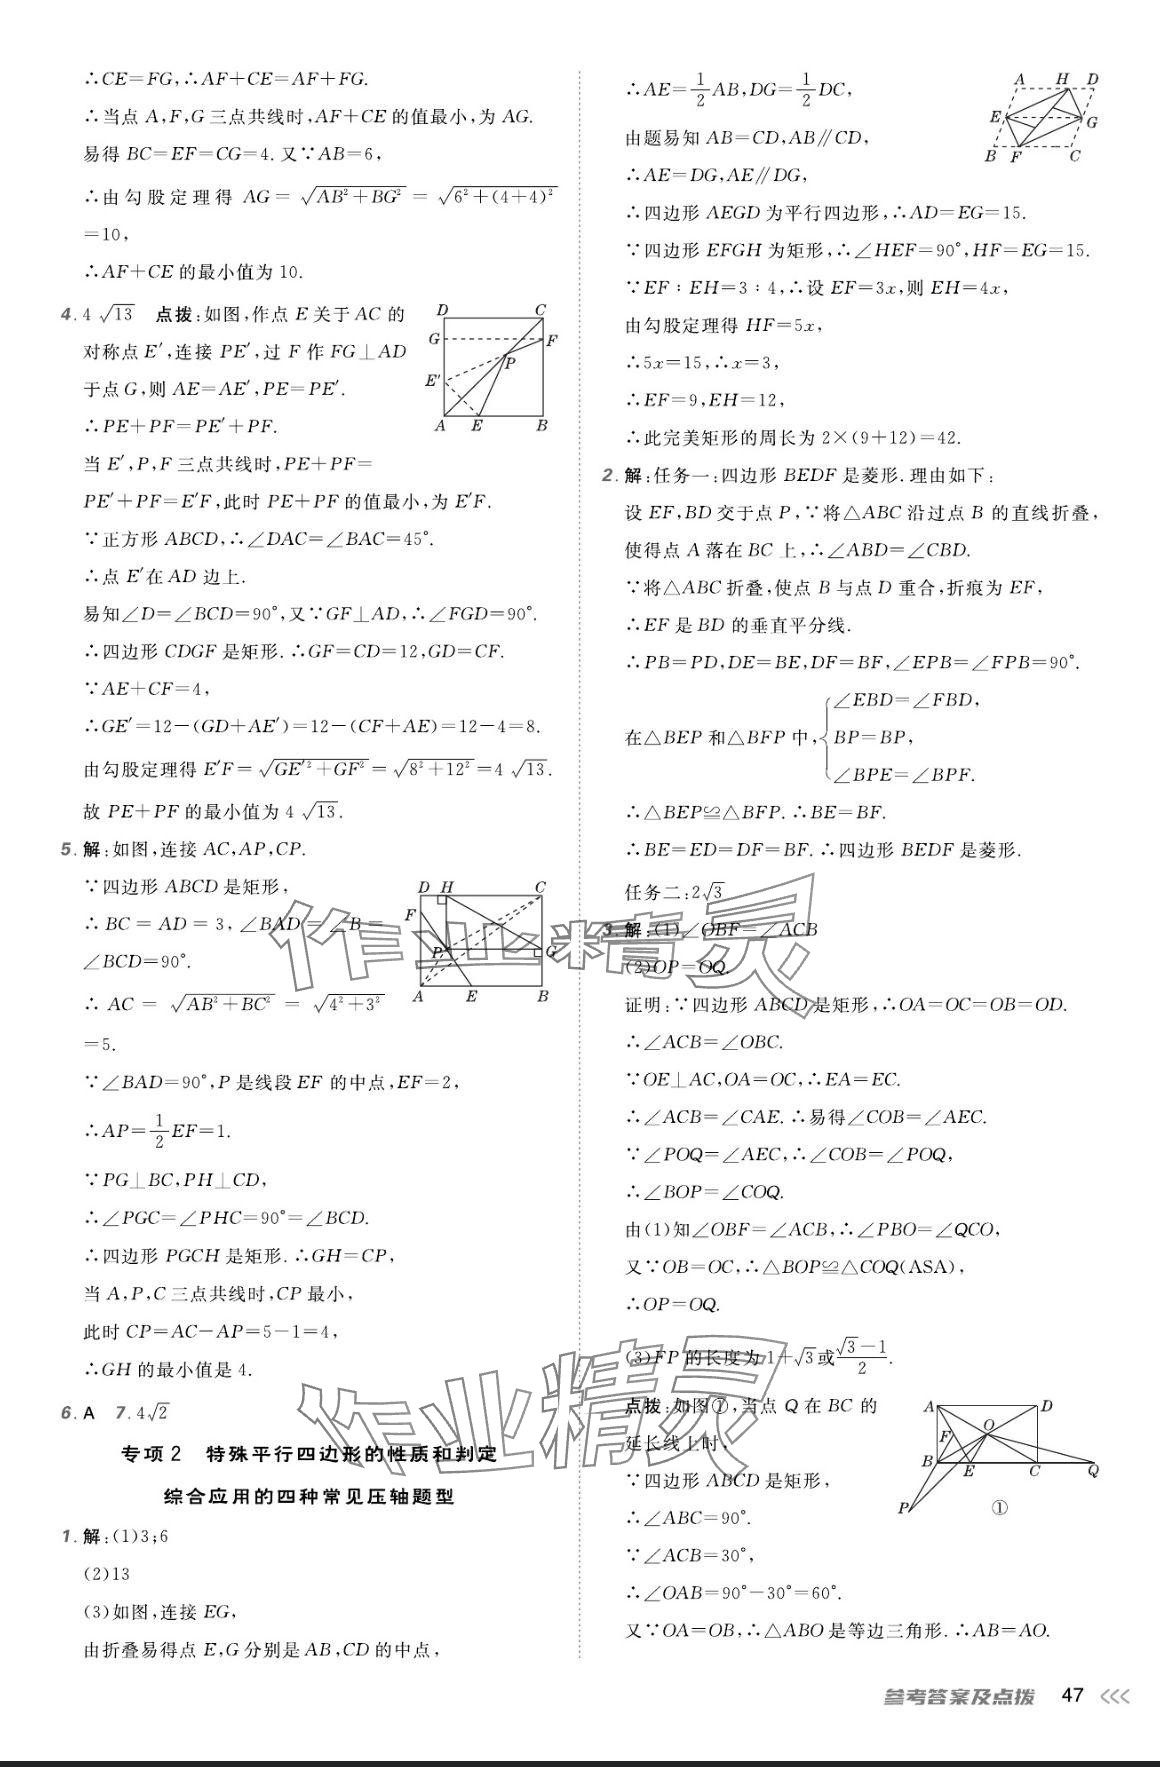 ∴CE=FG,∴AF+CE=AF+FG.
∴当点 A,F,G 三点共线时,AF+CE 的值最小,为 AG.
易得 BC=EF=CG=4. 又∵AB=6,
∴由勾股定理得 AG=√(AB²+BG²)=√(6²+(4+4)²)
=10,
∴AF+CE 的最小值为 10.
4. 4√13 点拨:如图,作点 E 关于 AC 的
对称点 E′,连接 PE′,过 F 作 FG⊥AD
于点 G,则 AE=AE′,PE=PE′.
∴PE+PF=PE′+PF.
D C G F P E′ A E B
当 E′,P,F 三点共线时,PE+PF=
PE′+PF=E′F,此时 PE+PF 的值最小,为 E′F.
∵正方形 ABCD,∴∠DAC=∠BAC=45°.
∴点 E′在 AD 边上.
易知∠D=∠BCD=90°,又∵GF⊥AD,∴∠FGD=90°.
∴四边形 CDGF 是矩形.∴GF=CD=12,GD=CF.
∵AE+CF=4,
∴GE′=12-(GD+AE′)=12-(CF+AE)=12-4=8.
由勾股定理得 E′F=√(GE′²+GF²)=√(8²+12²)=4√13.
故 PE+PF 的最小值为 4√13.
5. 解:如图,连接 AC,AP,CP.
∵四边形 ABCD 是矩形,
∴BC=AD=3,∠BAD=∠B=
∠BCD=90°.
D H C F P G A E B
∴AC=√(AB²+BC²)=√(4²+3²)
=5.
∵∠BAD=90°,P 是线段 EF 的中点,EF=2,
∴AP=1/2EF=1.
∵PG⊥BC,PH⊥CD,
∴∠PGC=∠PHC=90°=∠BCD.
∴四边形 PGCH 是矩形.∴GH=CP,
当 A,P,C 三点共线时,CP 最小,
此时 CP=AC-AP=5-1=4,
∴GH 的最小值是 4.
6. A 7. 4√2
专项 2 特殊平行四边形的性质和判定
综合应用的四种常见压轴题型
1. 解:(1)3;6
(2)13
(3)如图,连接 EG,
由折叠易得点 E,G 分别是 AB,CD 的中点,
∴AE=1/2AB,DG=1/2DC,
由题易知 AB=CD,AB∥CD,
∴AE=DG,AE∥DG,
A H D E G B F C
∴四边形 AEGD 为平行四边形,∴AD=EG=15.
∵四边形 EFGH 为矩形,∴∠HEF=90°,HF=EG=15.
∵EF∶EH=3∶4,∴设 EF=3x,则 EH=4x,
由勾股定理得 HF=5x,
∴5x=15,∴x=3,
∴EF=9,EH=12,
∴此完美矩形的周长为 2×(9+12)=42.
2. 解:任务一:四边形 BEDF 是菱形. 理由如下:
设 EF,BD 交于点 P,∵将△ABC 沿过点 B 的直线折叠,
使得点 A 落在 BC 上,∴∠ABD=∠CBD.
∵将△ABC 折叠,使点 B 与点 D 重合,折痕为 EF,
∴EF 是 BD 的垂直平分线.
∴PB=PD,DE=BE,DF=BF,∠EPB=∠FPB=90°.
在△BEP 和△BFP 中,{∠EBD=∠FBD,
BP=BP,
∠BPE=∠BPF.
∴△BEP≌△BFP.∴BE=BF.
∴BE=ED=DF=BF.∴四边形 BEDF 是菱形.
任务二:2√3
3. 解:(1)∠OBF=∠ACB
(2)OP=OQ.
证明:∵四边形 ABCD 是矩形,∴OA=OC=OB=OD.
∴∠ACB=∠OBC.
∵OE⊥AC,OA=OC,∴EA=EC.
∴∠ACB=∠CAE.∴易得∠COB=∠AEC.
∵∠POQ=∠AEC,∴∠COB=∠POQ,
∴∠BOP=∠COQ.
由(1)知∠OBF=∠ACB,∴∠PBO=∠QCO,
又∵OB=OC,∴△BOP≌△COQ(ASA),
∴OP=OQ.
(3)FP 的长度为 1+√3或(√3-1)/2.
点拨:如图①,当点 Q 在 BC 的
延长线上时,
∵四边形 ABCD 是矩形,
∴∠ABC=90°.
∵∠ACB=30°,
A D O F B E C Q P ①
∴∠OAB=90°-30°=60°.
又∵OA=OB,∴△ABO 是等边三角形.∴AB=AO.
作业精灵
作业精灵
参考答案及点拨 47